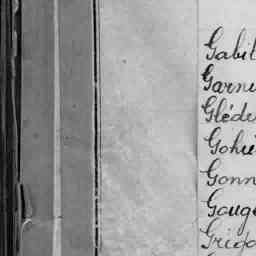 Gabil
Garni
Gléde
Gohié
Gonn
Gouge
Grigo